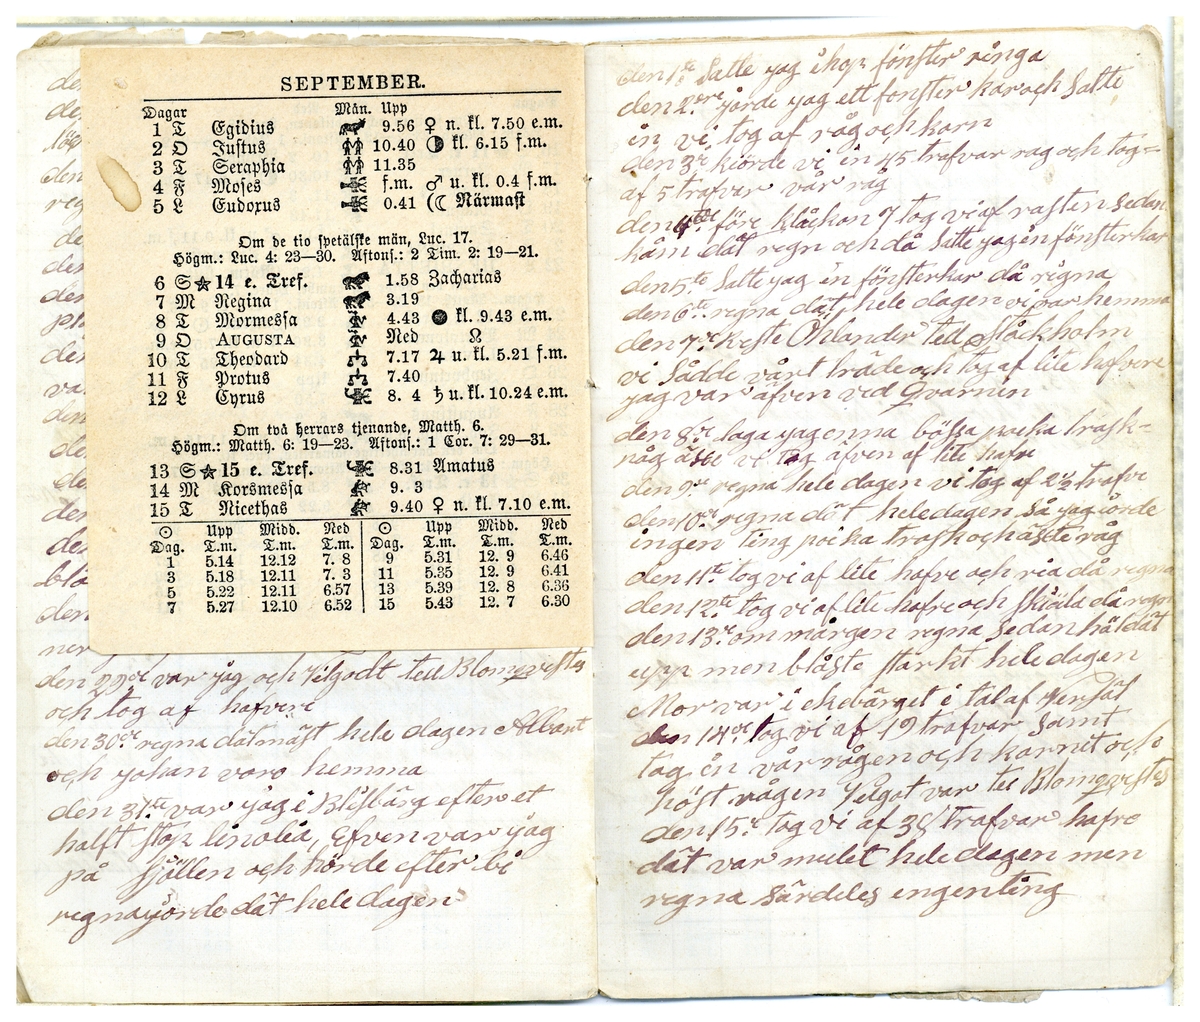 SEPTEMBER.
Dagar Mån. Upp
1 T Egidius 9.56 ♀ n. kl. 7.50 e.m.
2 O Justus 10.40 ◑ kl. 6.15 f.m.
3 T Seraphia 11.35
4 F Moses f.m. ♂ u. kl. 0.4 f.m.
5 L Eudoxus 0.41 (☾ Närmast
Om de tio spetälske män, Luc. 17.
Högm.: Luc. 4: 23—30. Aftons.: 2 Tim. 2: 19—21.
6 S ★ 14 e. Tref. 1.58 Zacharias
7 M Regina 3.19
8 T Mormessa 4.43 ● kl. 9.43 e.m.
9 O AUGUSTA Ned ☊
10 T Theodard 7.17 ♃ u. kl. 5.21 f.m.
11 F Protus 7.40
12 L Cyrus 8. 4 ♄ u. kl. 10.24 e.m.
Om två herrars tjenande, Matth. 6.
Högm.: Matth. 6: 19—23. Aftons.: 1 Cor. 7: 29—31.
13 S ★ 15 e. Tref. 8.31 Amatus
14 M Korsmessa 9. 3
15 T Nicethas 9.40 ♀ n. kl. 7.10 e.m.
☉ Upp Midd. Ned ☉ Upp Midd. Ned
Dag. T.m. T.m. T.m. Dag. T.m. T.m. T.m.
1 5.14 12.12 7. 8 9 5.31 12. 9 6.46
3 5.18 12.11 7. 3 11 5.35 12. 9 6.41
5 5.22 12.11 6.57 13 5.39 12. 8 6.36
7 5.27 12.10 6.52 15 5.43 12. 7 6.30
var jag och Vilgodt till Blomqvistes
och tog af hafveri
den 30de regna dät mäst hele dagen Albant
och johan voro hemma
den 31te var jag i Blisbärg efter et
halft stop linolia, Efven var jag
på fjällen och hörde efter bi
regna gjorde dät hele dagen
den 1ste Satte jag ihop fönster ringa
den 2dre gorde jag ett fönster kar och Satte
in vi tog af råg och korn
den 3de kiörde vi in 45 trafvar rag och tog=
af 5 trafvar vår råg
den 4de före klåckan 7 tog vi af rasten Sedan
kåm dät regn och då Satte jag in fönsterkar
den 5te Satte jag in fönsterkar då regna
den 6te regna dät hele dagen vi var hemma
den 7de reste Öhlander till Ståckholm
vi Sådde vårt träde och tog af lite hafvere
jag var äfven ved Qvarnin
den 8de laga jag enna bössa pocka trask=
råg äste vi tog äfven af lite hafre
den 9de regna hele dagen vi tog af 2½ trafve
den 10de regna dät hele dagen Så jag iörde
ingen ting pocka trask och äste råg
den 11te tog vi af lite hafre och ria då regna
den 12te tog vi af lite hafre och Skiäla då regn
den 13de om mårgen regna Sedan häl dät
upp men blåste Starkt hele dagen
Mor var i ekebärget i tal af
den 14de tog vi af 19 trafvar Samt
tog in vår rågen och karnet och
höst rågen Vilgot var tel Blomqvistes
den 15de tog vi af 38 trafvar hafre
dät var mulet hele dagen men
regna Särdeles engenting